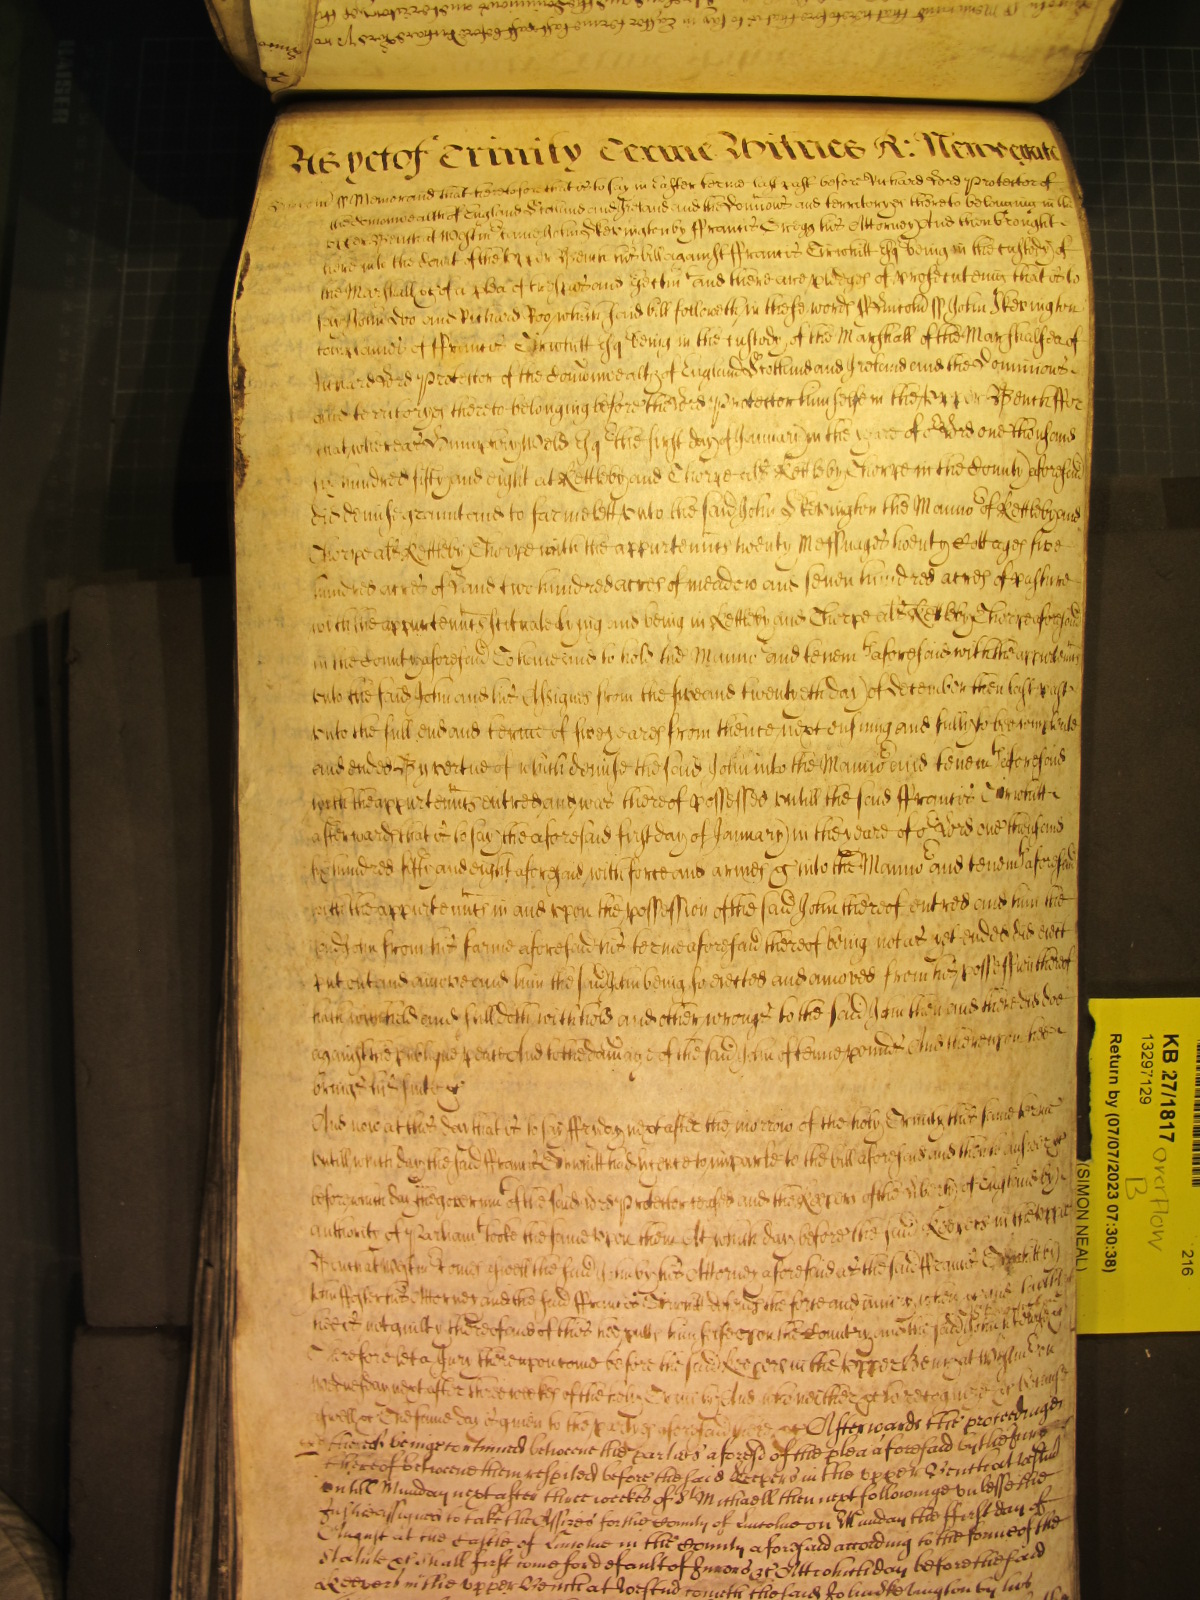 As yet of Trinity Terme Witnes R: Newdegate
Memorand that heretofore that is to say in Easter terme last past before Richard Lord Protector of
the Comonwealth of England Scotland and Ireland and the Dominions and territoryes thereto belonging in the
Upper Bench at Westm came John Skevington by Francis Griggs his Attorney And then brought
here into the Court of the Upper Bench his bill against ffrancis Tirwhitt Esq being in the custody of
the Marshall &c of a plea of trespas and Ejectm And there are pledges of prosecuteing that is to
say John Doo and Richard Roo which said bill followeth in these words ss Lincoln ss John Skevington
complaines of ffrancis Tirwhitt Esq being in the custody of the Marshall of the Marshalsea of
Richard Lord Protector of the Comonwealth of England Scotland and Ireland and the Dominions
and territoryes thereto belonging before the Lord Protector himselfe in the Upper Bench ffor
that whereas Esq the first day of January in the yeare of o Lord one thousand
six hundred fifty and eight at Kettleby and Thorpe als Kettleby Thorpe in the County aforesaid
did demise graunt and to farme lett unto the said John Skevington the Manno of Kettleby and
Thorpe als Kettleby Thorpe with the appurtenncs twenty Messuages twenty Cottages five
hundred acres of Land two hundred acres of meadow and seven hundred acres of pasture
with the appurtenncs scituate lying and being in Kettleby and Thorpe als Kettleby Thorpe aforesaid
in the County aforesaid To have and to hold the Manno and tenemts aforesaid with the appurtenncs
unto the said John and his Assignes from the five and twentyeth day of December then last past
unto the full end and terme of five yeares from thence next ensuing and fully to be compleate
and ended By vertue of which demise the said John into the Manno and tenemts aforesaid
with the appurtenncs entred and was thereof possessed untill the said ffrancis Tirwhitt
afterwards that is to say the aforesaid first day of January in the yeare of o Lord one thousand
six hundred fifty and eight aforesaid with force and armes &c into the Manno and tenemts aforesaid
with the appurtenncs in and upon the possession of the said John thereof entred and him the
said John from his farme aforesaid his terme aforesaid thereof being not as yet ended did eject
put out and amove and him the said John being so ejected and amoved from his possession thereof
hath withheld and still doth withhold and other wrongs to the said John then and there did doe
against the publique peace And to the damage of the said John of tenne pounds And thereupon hee
brings his suite &c
And now at this day that is to say ffriday next after the morrow of the holy Trinity this same terme
untill which day the said ffrancis Tirwhitt had licence to imparle to the bill aforesaid and then to answer &c
before which day the governmt of the said Lord Protector ceased and the Keepers of the liberty of England by
authority of Parliamt tooke the same upon them Att which day before the said Keepers in the Upper
Bench at Westm comes aswell the said John by his Attorney aforesaid as the said ffrancis Tirwhitt by
his Attorney and the said ffrancis Tirwhitt defends the force and injury when &c and saith that
hee is not guilty thereof and of this hee putts himselfe upon the Country and the said John likewise &c
Therefore let a Jury thereupon come before the said Keepers in the Upper Bench at Westm on
Wednesday next after three weekes of the holy Trinity And who neither &c to recognize &c because
aswell &c The same day is given to the partyes aforesaid there &c Afterwards the proceedinge
thereof beinge continued betweene the parties aforesd of the plea aforesaid by the Jury
thereof betweene them respited before the said Keepers in the upper Bench at Westm
untill Munday next after three weekes of St Michaell then next followinge unlesse the
Justices assigned to take the Assizes for the County of Lincolne on Munday the ffirst day of
August at the Castle of Lincolne in the County aforesaid according to the forme of the
Statute &c shall first come for default of Jurors &c Att which day before the said
Keepers in the upper Bench at Westm cometh the said John Skevington by his
KB 27/1817 overflow
B
13297129
216
Return by (07/07/2023 07:30:38)
(SIMON NEAL)